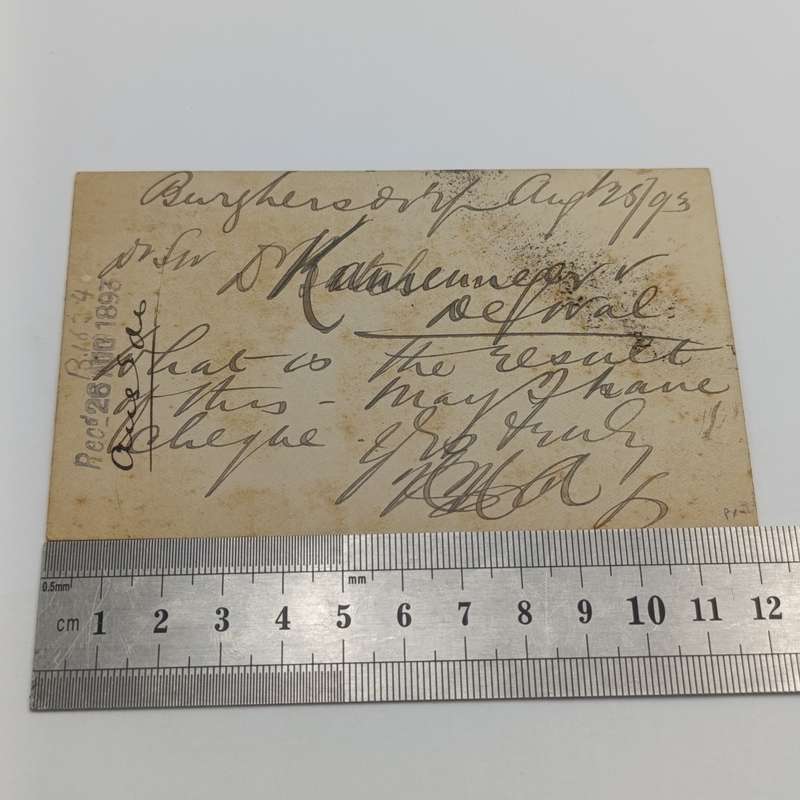 Burghersdorp Aug 25/93
Dr Sir
De Waal.
What is the result
of this - May I have
cheque. Yrs truly
Recd 26 AUG 1893
0.5mm
mm
cm 1 2 3 4 5 6 7 8 9 10 11 12